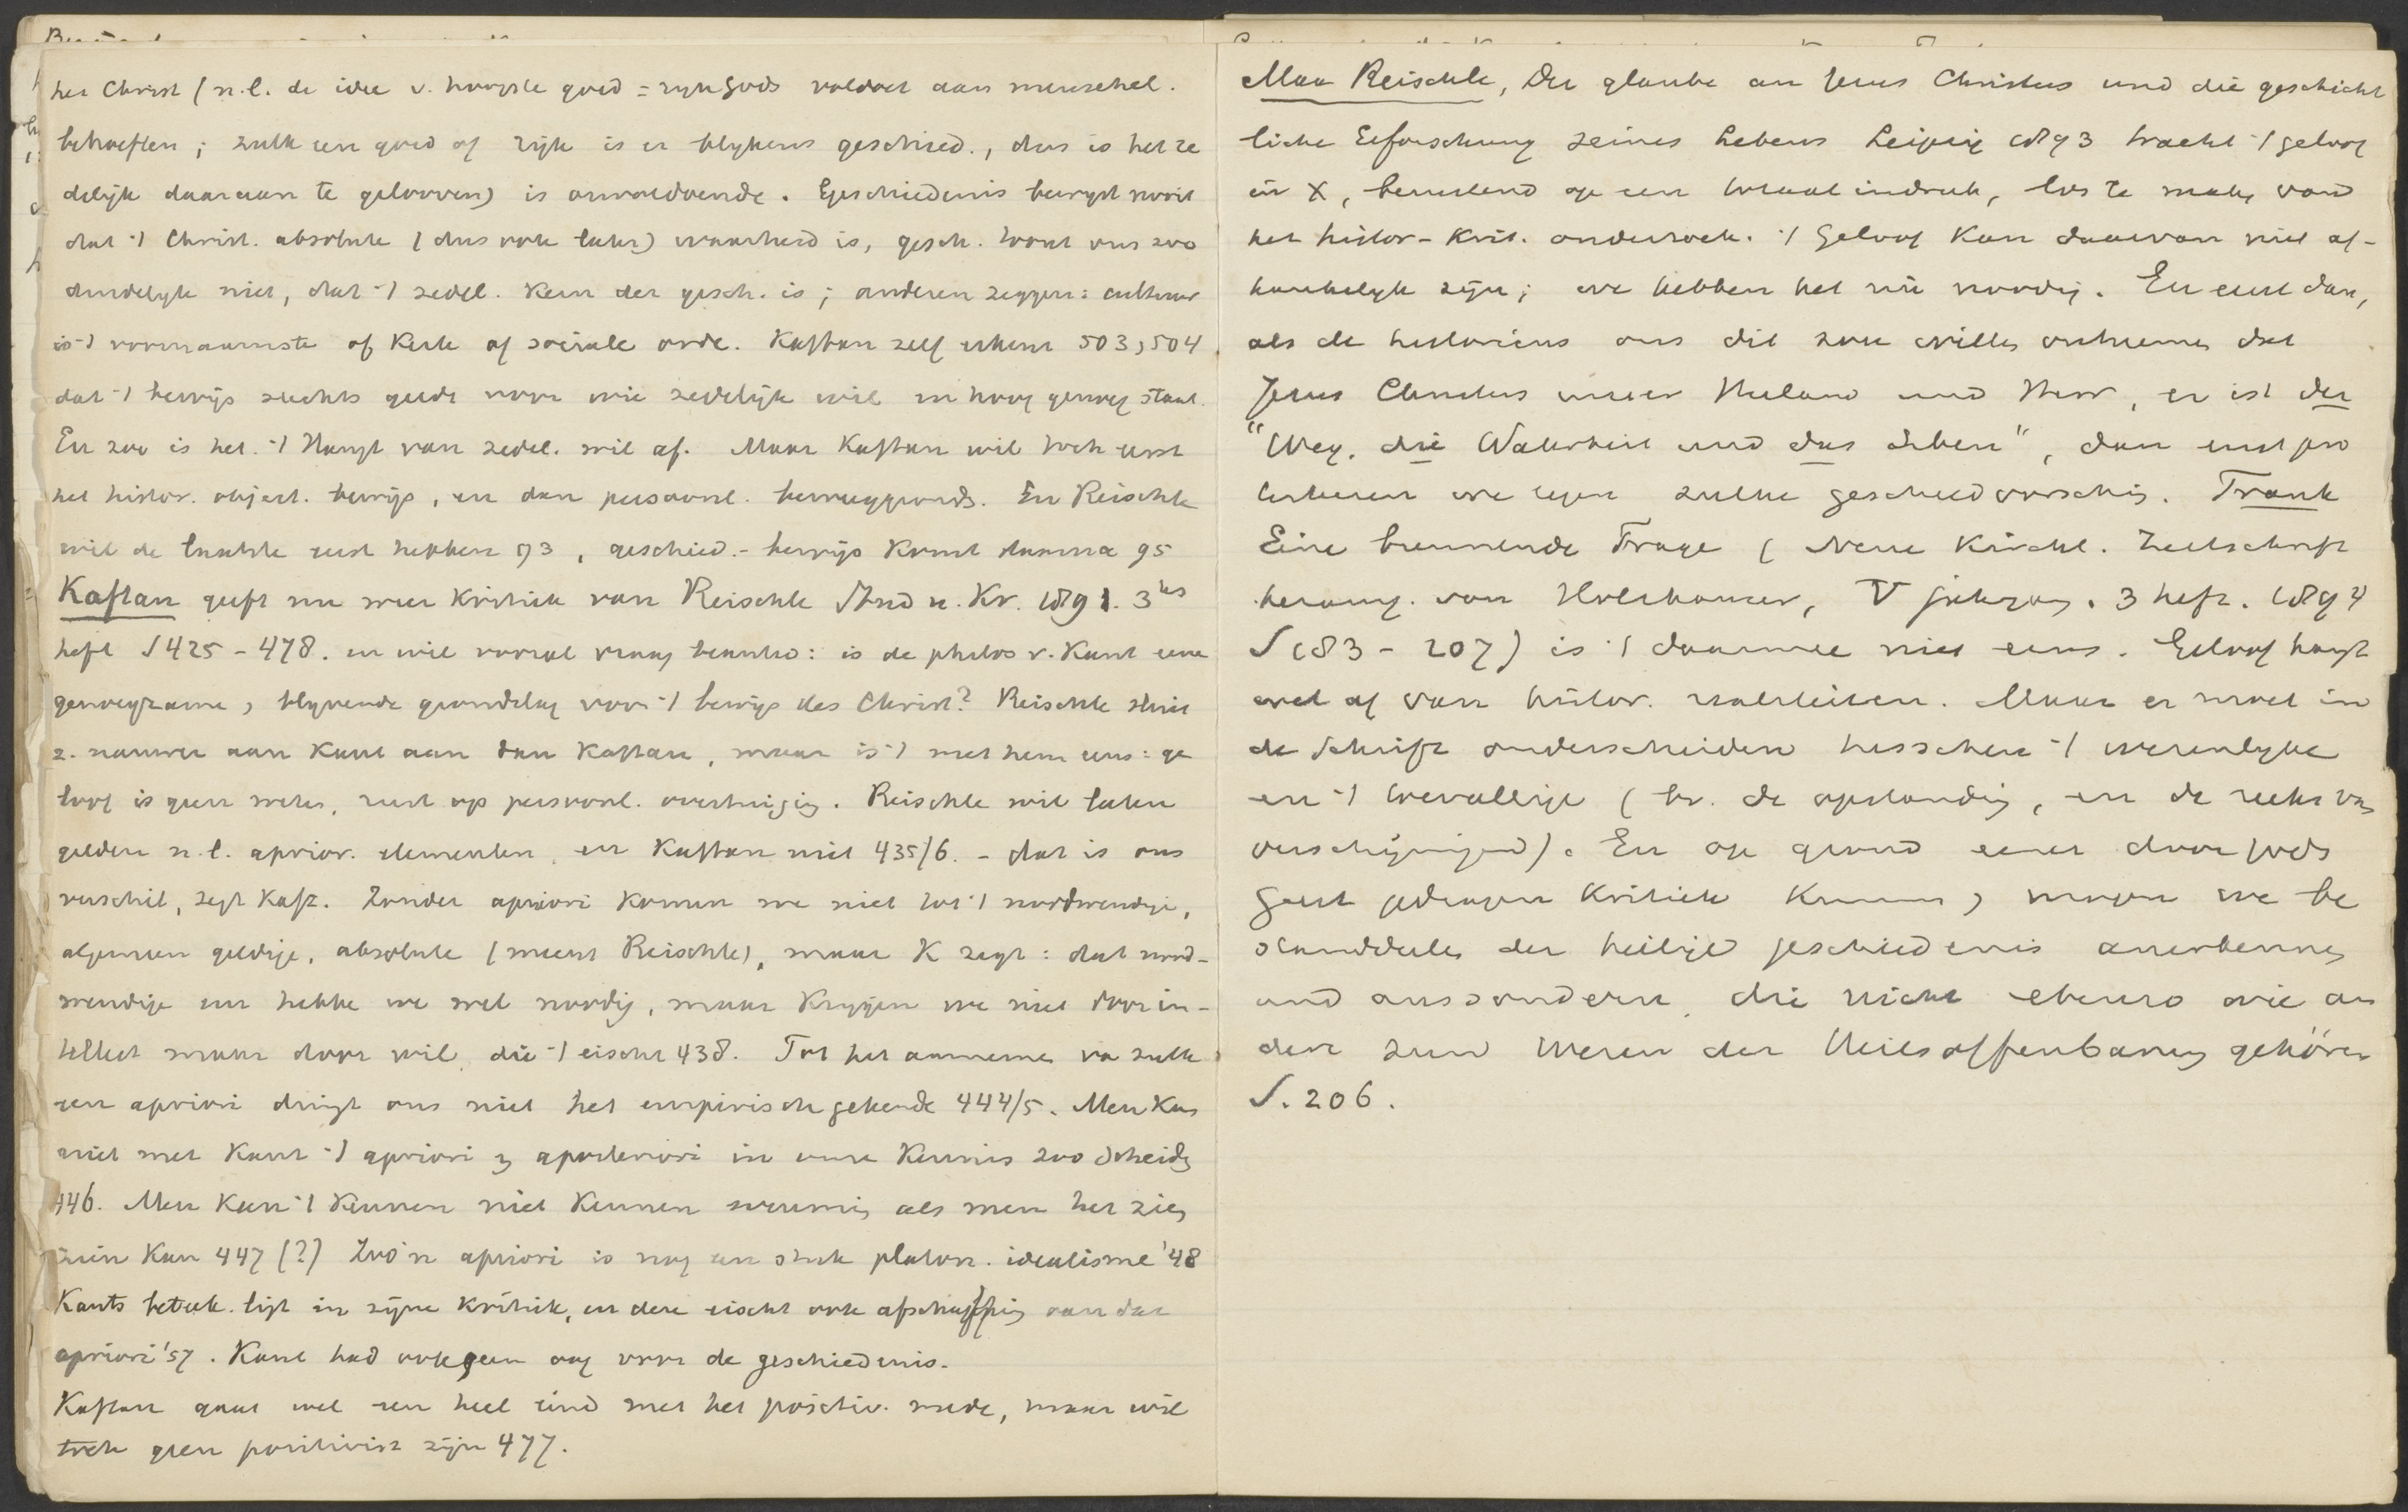 het Christ (n.l. de idee v. hoogste goed = ryk Gods voldoet aan menschel.
behoeften; zulk een goed of rijk is er blykens geschied., dus is het ze
delijk daaraan te gelooven) is onvoldoende. Geschiedenis bewyst nooit
dat 't Christ. absolute (dus ook later) waarheid is, gesch. toont ons zoo
duidelyk niet, dat 't zedel. kern der gesch. is; anderen zeggen: cultuur
is 't voornaamste of kerk of sociale orde. Kaftan zelf erkent 503, 504
dat 't bewijs slechts geldt voor wie zedelijk wil en hoog genoeg staat.
En zoo is het. 't Hangt van zedel. wil af. Maar Kaftan wil toch eerst
het histor. object. bewijs, en dan persoonl. beweeggronds. En Reischle
wil de laatste eerst hebben 93, geschied.-bewijs komt daarna 95
Kaftan geeft nu weer kritiek van Reischle Stud u. Kr. 1891. 3tes
heft S 425-478. en wil vooral vraag beantw: is de philos v. Kant eene
genoegzame, blyvende grondslag voor 't bewijs des Christ? Reischle sluit
z. nauwer aan Kant aan dan Kaftan, maar is 't met hem eens: ge
loof is geen weten, rust op persoonl. overtuiging. Reischle wil laten
gelden n.l. aprior. elementen, en Kaftan niet 435/6. - dat is ons
verschil, zegt Kaft. Zonder apriori komen we niet tot 't nootwendige,
algemeen geldige, absolute (meent Reischle), maar K zegt: dat nood-
wendige enz hebbe we wel noodig, maar krygen we niet door in-
tellect maar door wil, die 't eischt 438. Tot het aannemen va zulk
een apriori dringt ons niet het empirisch gekende 444/5. Men kan
niet met Kant 't apriori & aposteriori in onze kennis zoo scheidg
446. Men kan 't kennen niet kennen evenmin als men het zien
zien kan 447 (?) Zoo'n apriori is nog een stuk platon. idealisme '48
Kants beteek. ligt in zijne kritiek, en deze eischt ook afschaffing van dat
apriori '57. Kant had ook geen oog voor de geschiedenis.
Kaftan gaat wel een heel eind met het positiv. mede, maar wil
toch geen positivist zijn 477.
Max Reischle, Der glaube an Jesus Christus und die geschicht
liche Erforschung seines Lebens Leipzig 1893 tracht 't geloof
in X, berustend op een totaalindruk, los te maken vand
het histor-krit. onderzoek. 't Geloof kan daarvan niet af-
hankelyk zijn; we hebben het nu noodig. En eerst dan,
als de historicus ons dit zou willen ontnemen dat
Jesus Christus unser Heiland und Herr, er ist der
"Weg, die Wahrheit und das Leben", dan eerst pro
testeeren we tegen zulke geschiedvorsching. Frank
Eine brennende Frage (Neue Kirchl. Zeitschrift
herausg. von Holzhauser, V jahrgang. 3 heft. 1894
S 183-207) is 't daarmee niet eens. Geloof hangt
wel af van histor. realiteiten. Maar er moet in
de Schrift onderscheiden tusschen 't wezenlyke
en 't toevallige (bv. de opstanding, en de reeks van
verschijningen). En op grond eener door Gods
Geest gedragen kritiek kunnen, mogen we be
standdeelen der heilige geschiedenis anerkennen
und aussondern, die nicht ebenso wie an
dere zum Wesen der Heilsoffenbarung gehören
S. 206.